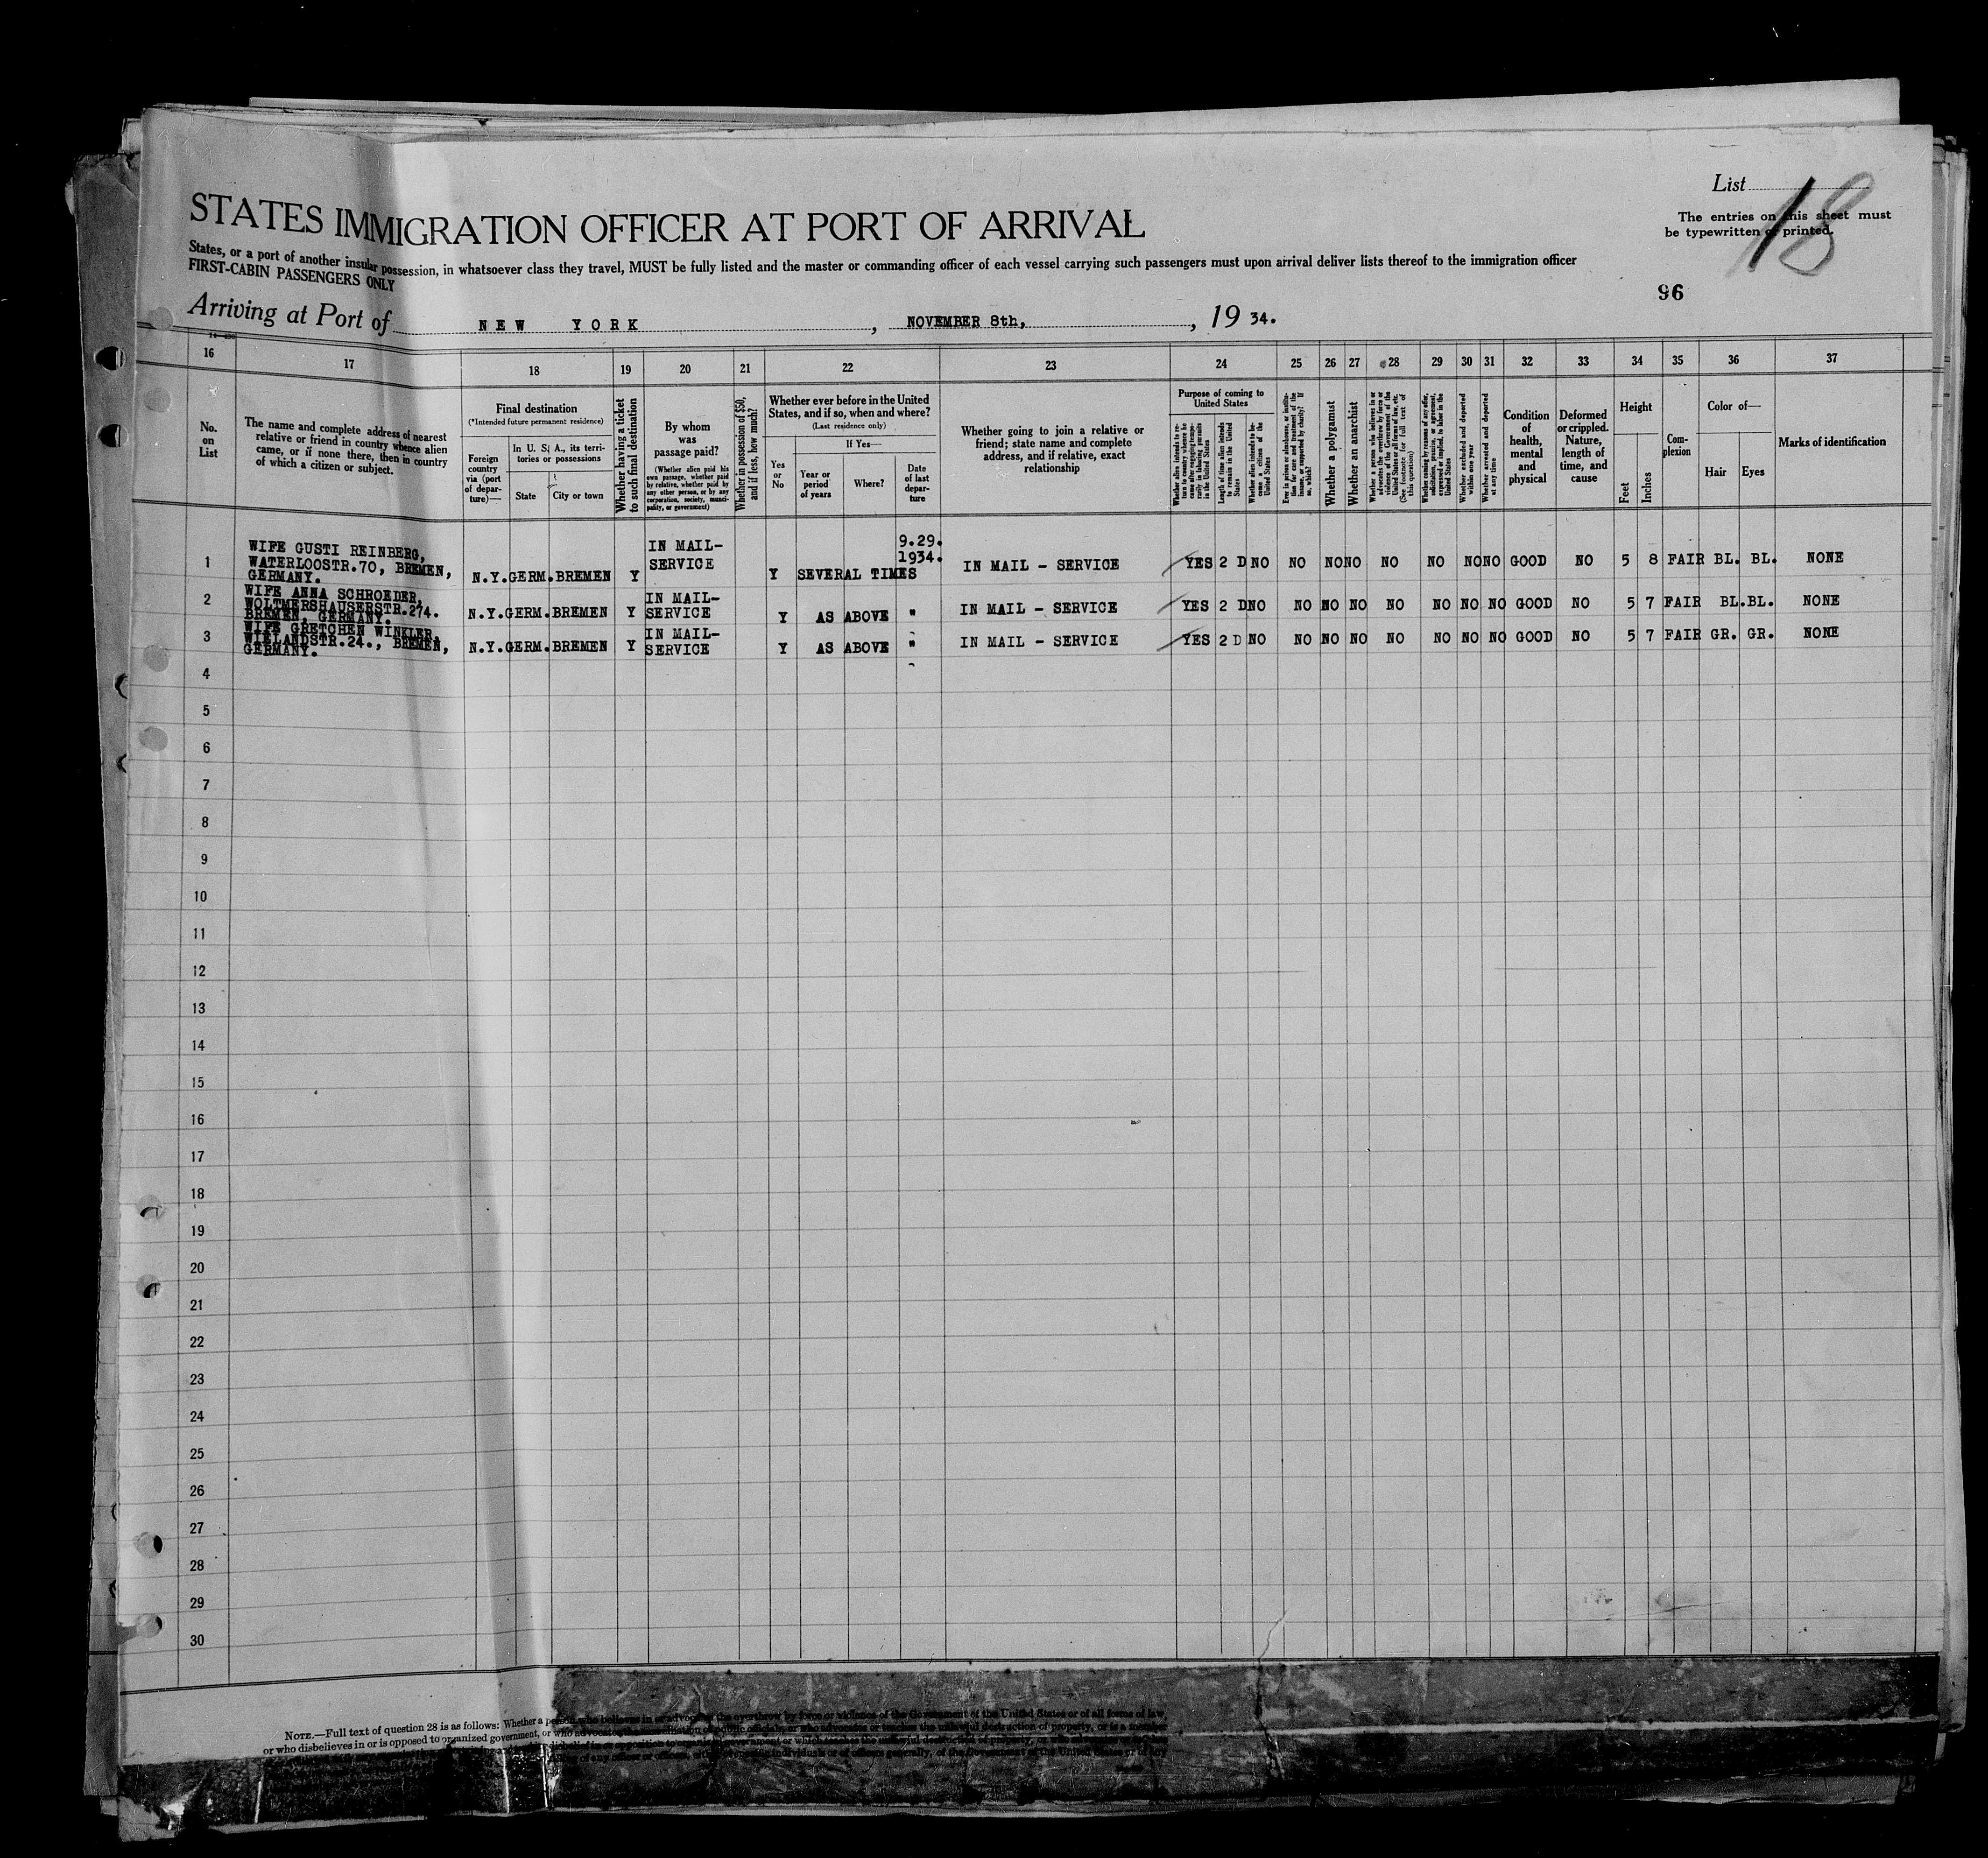 List 18
STATES IMMIGRATION OFFICER AT PORT OF ARRIVAL
The entries on this sheet must
be typewritten or printed.
States, or a port of another insular possession, in whatsoever class they travel, MUST be fully listed and the master or commanding officer of each vessel carrying such passengers must upon arrival deliver lists thereof to the immigration officer
FIRST-CABIN PASSENGERS ONLY
96
Arriving at Port of NEW YORK, NOVEMBER 8th, 1934.
16 17 18 19 20 21 22 23 24 25 26 27 28 29 30 31 32 33 34 35 36 37
No.
on
List
The name and complete address of nearest
relative or friend in country whence alien
came, or if none there, then in country
of which a citizen or subject.
Final destination
(*Intended future permanent residence)
Foreign
country
via (port
of depar-
ture)—
In U. S. A., its terri-
tories or possessions
State
City or town
Whether having a ticket
to such final destination
By whom
was
passage paid?
(Whether alien paid his
own passage, whether paid
by relative, whether paid by
any other person, or by any
corporation, society, munici-
pality, or government)
Whether in possession of $50,
and if less, how much?
Whether ever before in the United
States, and if so, when and where?
(Last residence only)
Yes
or
No
If Yes—
Year or
period
of years
Where?
Date
of last
depar-
ture
Whether going to join a relative or
friend; state name and complete
address, and if relative, exact
relationship
Purpose of coming to
United States
Whether alien intends to re-
turn to country whence he
came after engaging tempo-
rarily in laboring pursuits
in the United States
Length of time alien intends
to remain in the United
States
Whether alien intends to be-
come a citizen of the
United States
Ever in prison or almshouse, or institu-
tion for care and treatment of the
insane, or supported by charity? If
so, which?
Whether a polygamist
Whether an anarchist
Whether a person who believes in or
advocates the overthrow by force or
violence of the Government of the
United States or all forms of law, etc.
(See footnote for full text of
this question)
Whether coming by reasons of any offer,
solicitation, promise, or agreement,
expressed or implied, to labor in the
United States
Whether excluded and deported
within one year
Whether arrested and deported
at any time
Condition
of
health,
mental
and
physical
Deformed
or crippled.
Nature,
length of
time, and
cause
Height
Feet
Inches
Com-
plexion
Color of—
Hair
Eyes
Marks of identification
1 WIFE GUSTI REINBERG,
WATERLOOSTR.70, BREMEN,
GERMANY. N.Y. GERM. BREMEN Y IN MAIL-
SERVICE Y SEVERAL TIMES 9.29.
1934. IN MAIL - SERVICE YES 2 D NO NO NO NO NO NO NO NO GOOD NO 5 8 FAIR BL. BL. NONE
2 WIFE ANNA SCHROEDER,
WOLTMERSHAUSERSTR.274.
BREMEN, GERMANY. N.Y. GERM. BREMEN Y IN MAIL-
SERVICE Y AS ABOVE " IN MAIL - SERVICE YES 2 D NO NO NO NO NO NO NO NO GOOD NO 5 7 FAIR BL. BL. NONE
3 WIFE GRETCHEN WINKLER,
WIELANDSTR.24., BREMEN,
GERMANY. N.Y. GERM. BREMEN Y IN MAIL-
SERVICE Y AS ABOVE " IN MAIL - SERVICE YES 2 D NO NO NO NO NO NO NO NO GOOD NO 5 7 FAIR GR. GR. NONE
4
5
6
7
8
9
10
11
12
13
14
15
16
17
18
19
20
21
22
23
24
25
26
27
28
29
30
NOTE.—Full text of question 28 is as follows: Whether a person who believes in or advocates the overthrow by force or violence of the Government of the United States or of all forms of law,
or who disbelieves in or is opposed to organized government, or who advocates the assassination of public officials, or who advocates or teaches the unlawful destruction of property, or is a member
disbelief in or opposition to organized government or which teaches the unlawful destruction of property,
of any officer or officers, either of specific individuals or of officers generally, of the Government of the United States or of any